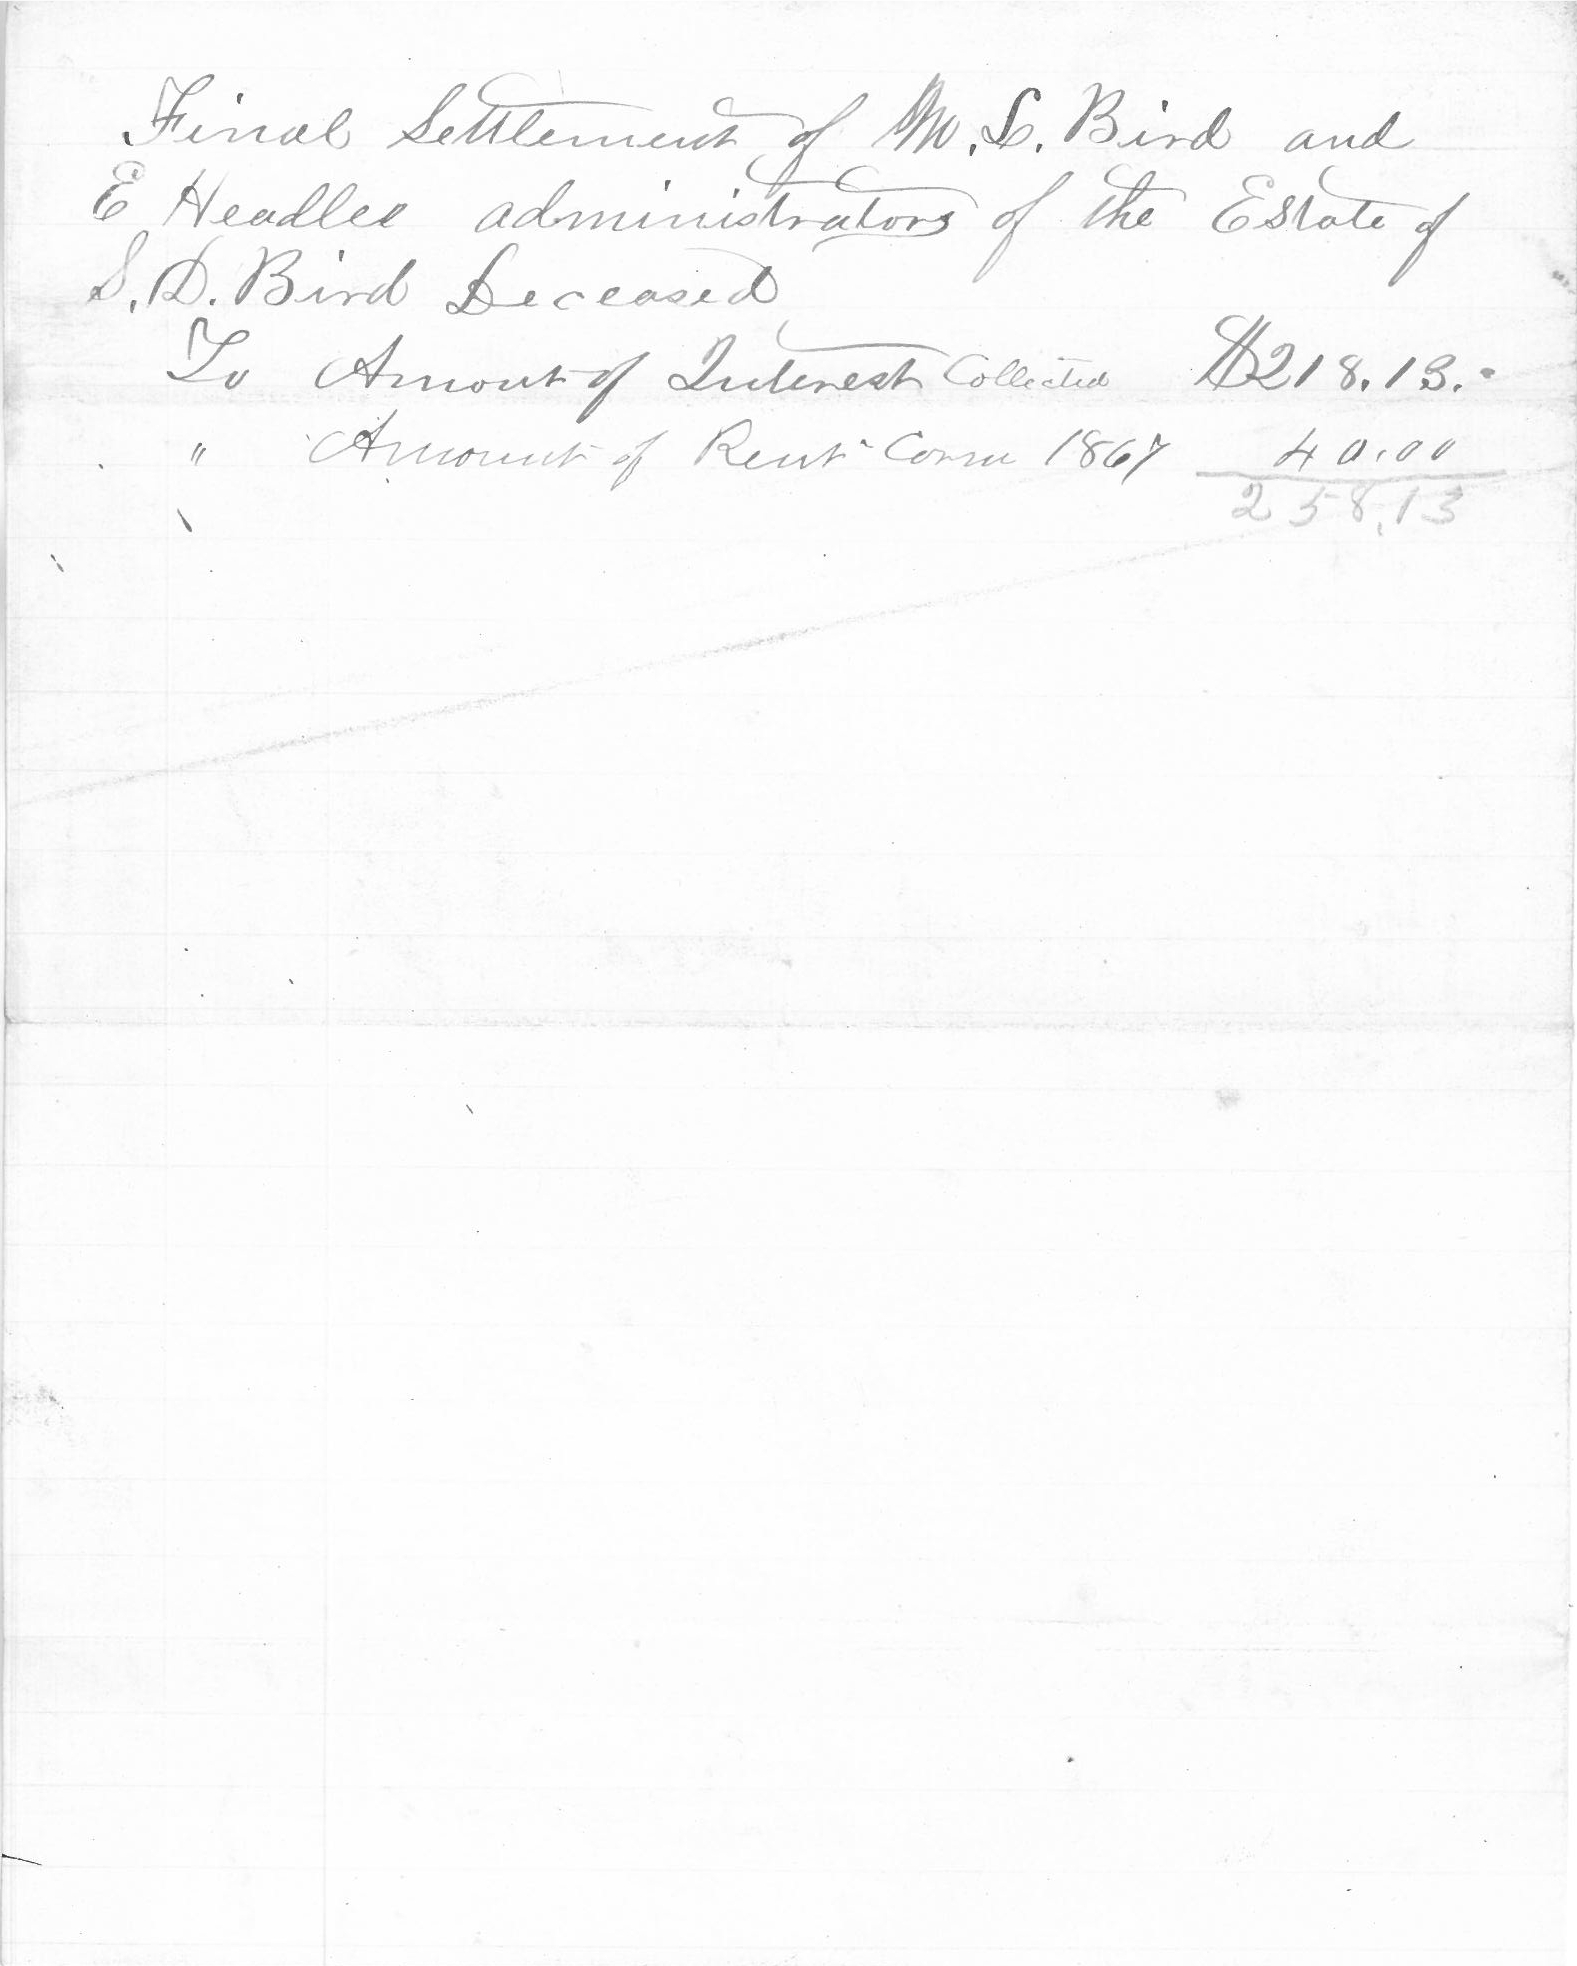 Final Settlement of M. L. Bird and
E Headlee administrators of the Estate of
S. D. Bird Deceased
To Amount of Interest Collected $218.13.
" Amount of Rent Corn 1867 40.00
258.13